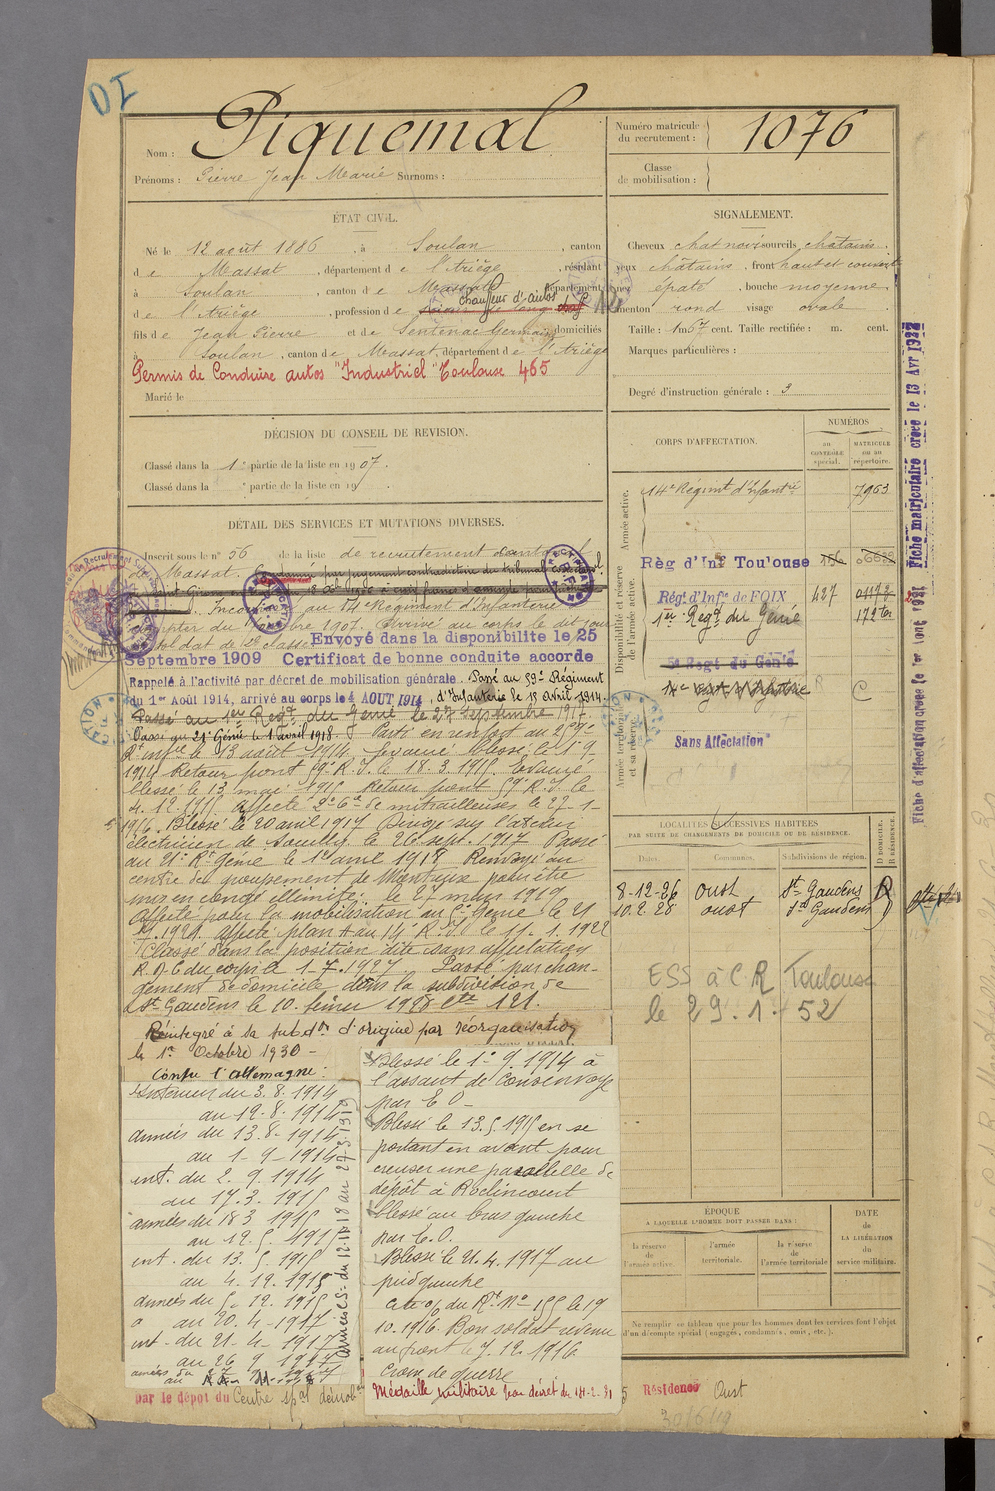 DI
Nom : Piquemal
Prénoms : Pierre Jean Marie Surnoms :
Numéro matricule du recrutement : 1076
Classe de mobilisation :
ÉTAT CIVIL.
Né le 12 août 1886, à Soulan, canton
de Massat, département de l'Ariège, résidant
à Soulan, canton de Massat, département
de l'Ariège, profession de chauffeur d'autos
fils de Jean Pierre et de Sentenac Germaine domiciliés
à Soulan, canton de Massat, département de l'Ariège
Permis de Conduire autos "Industriel" Toulouse 465
Marié le
SIGNALEMENT.
Cheveux chat noir sourcils châtains.
yeux châtains, front haut et couvert
nez épaté, bouche moyenne
menton rond visage ovale
Taille : 1m 67 cent. Taille rectifiée : m. cent.
Marques particulières :
Degré d'instruction générale : 3
DÉCISION DU CONSEIL DE REVISION.
Classé dans la 1e partie de la liste en 1907.
Classé dans la e partie de la liste en 19
CORPS D'AFFECTATION.
NUMÉROS
au CONTRÔLE spécial.
MATRICULE ou au répertoire.
Armée active.
14e Régiment d'Infantrie 7963
Disponibilité et réserve de l'armée active.
Rég d'Inf Toulouse 156 6639
Régt d'Infie de FOIX 427 01173
1er Regt du Génie 172 bis
5e Regt du Génie
Armée territoriale et sa réserve.
Sans Affectation
DÉTAIL DES SERVICES ET MUTATIONS DIVERSES.
Inscrit sous le n° 56 de la liste de recrutement cantonal
de Massat.
Incorporé au 14e Régiment d'Infanterie
à compter du octobre 1907. Arrivé au corps le dit jour
soldat de 2e classe Envoyé dans la disponibilite le 25
Septembre 1909 Certificat de bonne conduite accorde
Rappelé à l'activité par décret de mobilisation générale Passé au 59e Régiment
du 1er Août 1914, arrivé au corps le 4 AOUT 1914, d'Infanterie le 15 Avril 1914.
Passé au 1er Regt du Génie le 27 Septembre 1917
Passé au 21e Génie le 1 avril 1918. Parti en renfort au 259e
Rt infie le 13 août 1914. Evacué blessé le 1 9
1914 Retour front 59e R.I. le 18.3.1915. Evacué
blessé le 13 mai 1915 Retour front 59e R.I. le
4.12.1915 affecté 2e Cie de mitrailleuses le 27-1-
1916. Blessé le 20 avril 1917 Dirigé sur l'atelier
électricien de Souilly le 26 sept. 1917 Passé
au 21e Rt génie le 1er avril 1918 Renvoyé au
centre de groupement de pour être
mis en congé illimité le 27 mars 1919
Affecté pour la mobilisation au Génie le 21
1921. affecté plan A au 14e R.I. le 11.1.1922
Classé dans la position dite sans affectation
R.A.E du corps le 1-7-1927. Passé par chan-
gement de domicile dans la subdivision de
St Gaudens le 10 février 1928 Cte 121.
Réintégré à sa subdon d'origine par réorganisation
le 1er Octobre 1930 -
Contre l'allemagne :
Intérieur du 3.8.1914
au 12.8.1914
armées du 13.8.1914
au 1-9-1914
int. du 2.9.1914
au 17.3.1915
armées du 18 3 1915
au 12.5.1915
int. du 13.5.1915
au 4.12.1915
armées du 5.12.1915
au 20.4.1917
int. du 21.4.1917
au 26 9 1917
par le dépôt du Centre spal démobon
Blessé le 1er 9.1914 à
l'assaut de Consenvoye
par E O -
Blessé le 13.5 1915 en se
portant en avant pour
creuser une parallelle de
dépôt à Roclincourt
blessé au bras gauche
par E.O.
Blessé le 21.4.1917 au
pied gauche
Cité o/ du Rt N° 155 le 19
10.1916. Bon soldat revenu
au front le 7.12.1916
Croix de guerre
Médaille militaire par décret du
LOCALITÉS SUCCESSIVES HABITÉES
PAR SUITE DE CHANGEMENTS DE DOMICILE OU DE RÉSIDENCE.
Dates. Communes. Subdivisions de région. D DOMICILE. R RÉSIDENCE.
8-12-26 oust St Gaudens R
10.2.28 oust St Gaudens D
ESS à C R Toulouse
le 29.1.52
ÉPOQUE
A LAQUELLE L'HOMME DOIT PASSER DANS :
la réserve de l'armée active.
l'armée territoriale.
la réserve de l'armée territoriale
DATE de LA LIBÉRATION du service militaire.
Ne remplir ce tableau que pour les hommes dont les services font l'objet
d'un décompte spécial (engagés, condamnés, omis, etc.).
Résidence Oust
30/6/19
Fiche matriculaire créée le 13 Avr 1922